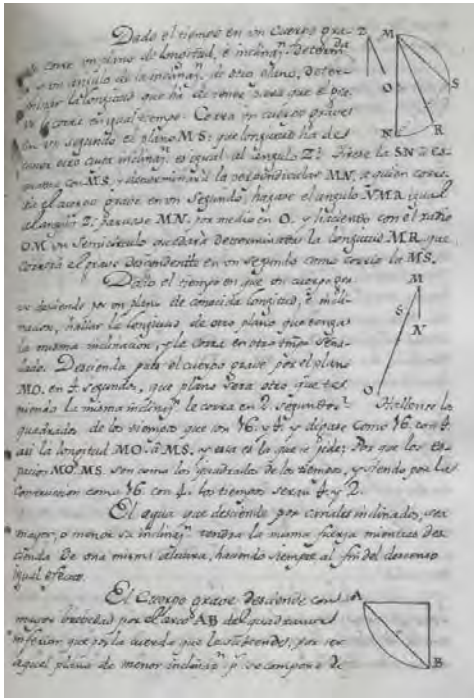 Dado el tiempo en un Cuerpo gra-
corre un plano de longitud, è inclinaz.n determ.da
y un angulo de la inclinaz.n de otro plano, deter-
minar la longitud que ha de tener para que el gra-
ve le corra en igual tiempo. Corra un cuerpo grave
en un segundo el plano MS: que longitud ha de
tener otro cuia inclinaz.n es igual al angulo Z? Tirese la SN à es-
quadra con MS, y determinarà la perpendicular MN, a quien corre-
rà el cuerpo grave en un Segundo; hagase el angulo NMR igual
al angulo Z: partase MN, por medio en O. y haciendo con el radio
OM un Semicirculo quedarà determinada la longitud MR que
correrà el grave descendente en un segundo como corrio la MS.
Dado el tiempo en que un cuerpo gra-
ve desciende por un plano de conocida longitud, è incli-
nacion, hallar la longitud de otro plano que tenga
la misma inclinacion, y le corra en otro tmpo seña-
lado. Descienda pues el cuerpo grave por el plano
MO. en 4. segundos, que plano sera otro que te-
niendo la misma inclinaz.n le corra en 2. segundos? Hallense los
quadrados de los tiempos que son 16. y 4. y digase como 16. con 4.
asi la longitud MO à MS. y esa es lo que se pide; Por que los es-
pacios MO MS. son como los quadrados de los tiempos, y siendo por la
construccion como 16. con 4. los tiempos seran 4. y 2.
El agua que desciende por canales inclinados, sea
mayor, o menor su inclinaz.n tendra la misma fuerza mientras des-
cienda de una misma altura, haciendo siempre al fin del descenso
igual efecto.
El Cuerpo grave desciende con
mayor brebedad por el arco AB del quadrante
inferior que por la cuerda que le subtende, por ser
aquel plano de menor inclinaz.n p.r se compone de
Z M
S
O
N R
M
S
N
O
A
B